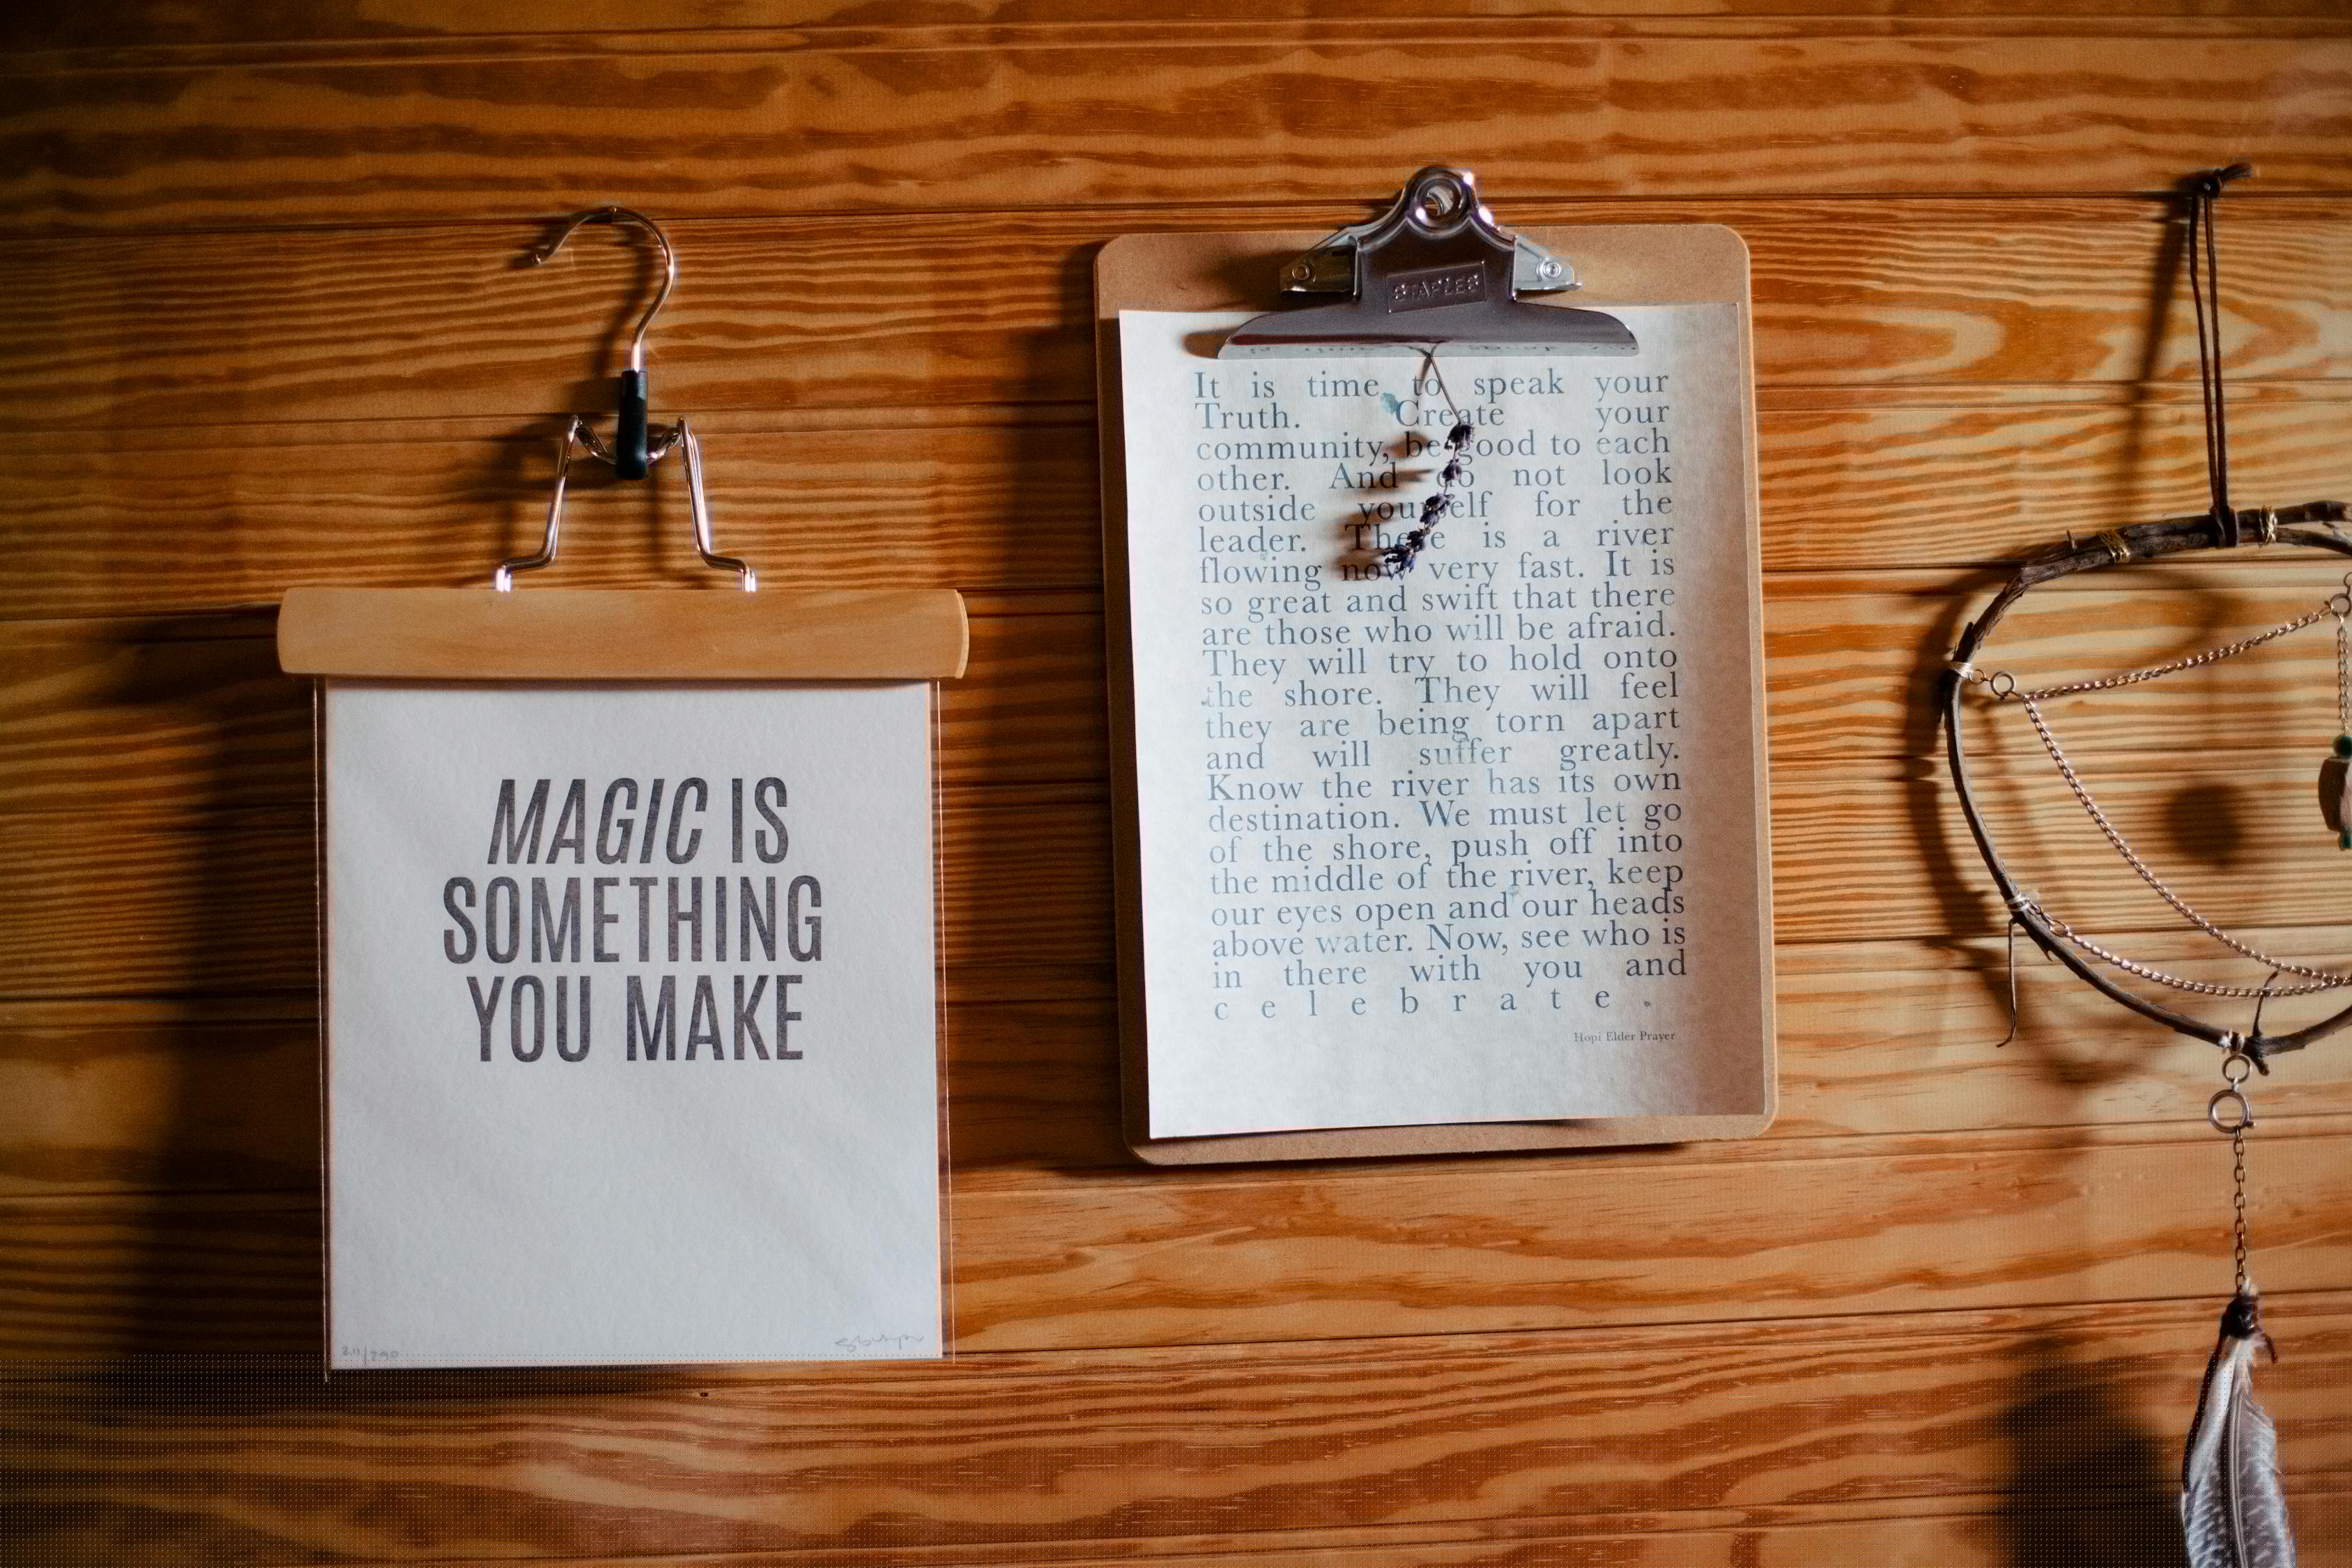 MAGIC IS
SOMETHING
YOU MAKE
STAPLES
It is time to speak your
Truth. Create your
community, be good to each
other. And do not look
outside yourself for the
leader. There is a river
flowing now very fast. It is
so great and swift that there
are those who will be afraid.
They will try to hold onto
the shore. They will feel
they are being torn apart
and will suffer greatly.
Know the river has its own
destination. We must let go
of the shore, push off into
the middle of the river, keep
our eyes open and our heads
above water. Now, see who is
in there with you and
c e l e b r a t e .
Hopi Elder Prayer